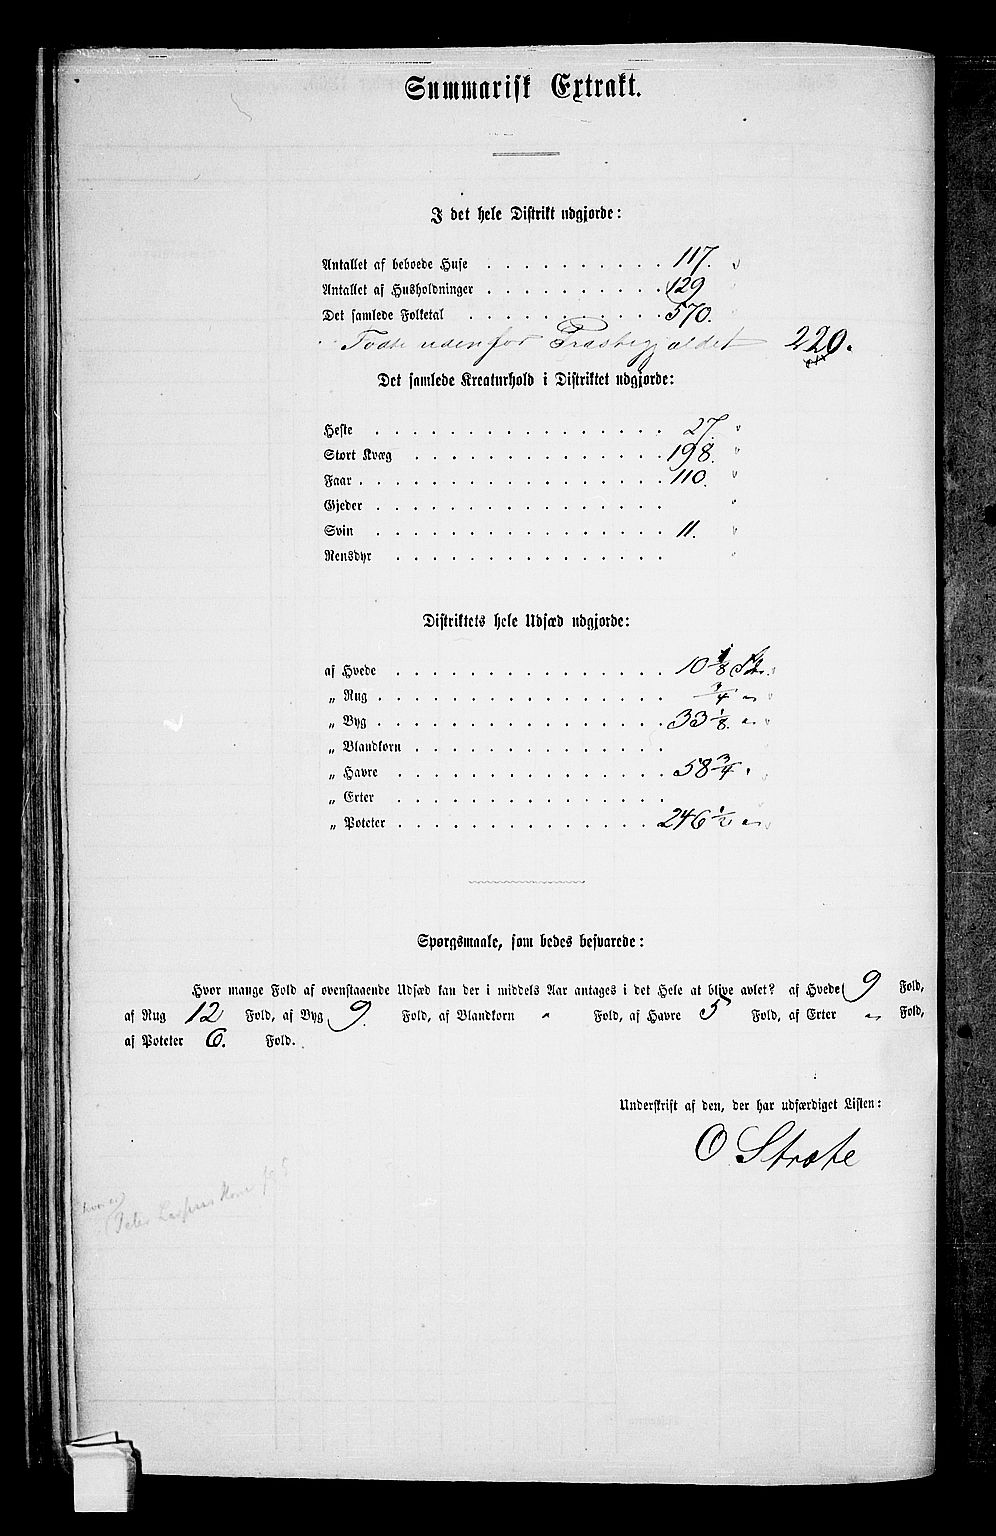 Summarisk Extrakt.
I det hele Distrikt udgjorde:
Antallet af beboede Huse . . . . . . . . . 117.
Antallet af Husholdninger . . . . . . . . . 129
Det samlede Folketal . . . . . . . . . 570.
Fødte udenfor Præstegjældet 220.
Det samlede Kreaturhold i Distriktet udgjorde:
Heste . . . . . . . . . 27. "
Stort Kvæg . . . . . . . . . 198. "
Faar . . . . . . . . . 110. "
Gjeder . . . . . . . . . "
Svin . . . . . . . . . 11. "
Rensdyr . . . . . . . . . "
Distriktets hele Udsæd udgjorde:
af Hvede . . . . . . . . . 10 1/8
„ Rug . . . . . . . . . 3/4 "
„ Byg . . . . . . . . . 33 1/8 "
„ Blandkorn . . . . . . . . .
„ Havre . . . . . . . . . 58 3/4 "
„ Erter . . . . . . . . .
„ Poteter . . . . . . . . . 246 1/2 "
Spørgsmaale, som bedes besvarede:
Hvor mange Fold af ovenstaaende Udsæd kan der i middels Aar antages i det Hele at blive avlet? af Hvede 9 Fold,
af Rug 12 Fold, af Byg 9. Fold, af Blandkorn " Fold, af Havre 5 Fold, af Erter " Fold,
af Poteter 6. Fold.
Underskrift af den, der har udfærdiget Listen:
O Strøte